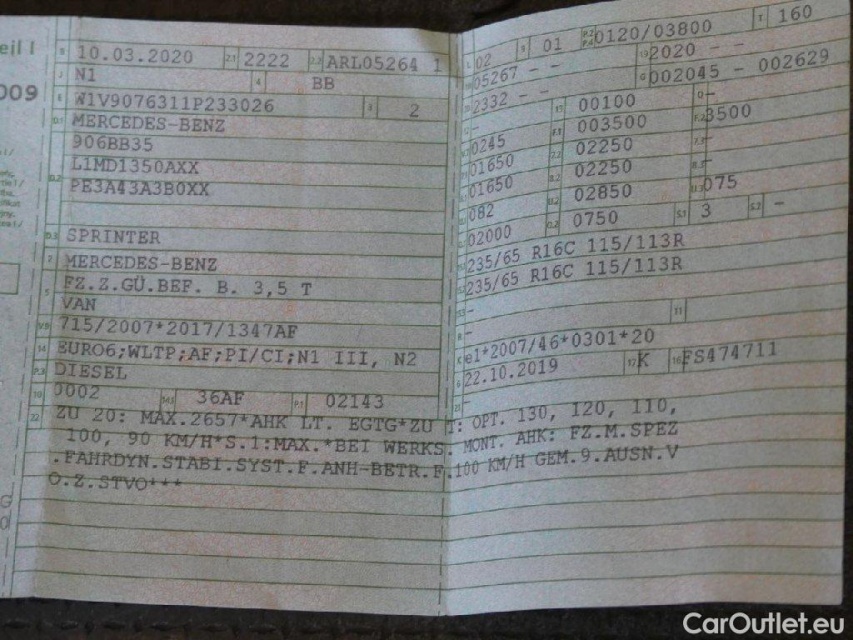 eil I
009
B 10.03.2020 2.1 2222 2.2 ARL05264 1
J N1 4 BB
E W1V9076311P233026 3 2
D.1 MERCEDES-BENZ
906BB35
D.2 L1MD1350AXX
PE3A43A3B0XX
D.3 SPRINTER
2 MERCEDES-BENZ
5 FZ.Z.GÜ.BEF. B. 3,5 T
VAN
V.9 715/2007*2017/1347AF
14 EURO6;WLTP;AF;PI/CI;N1 III, N2
P.3 DIESEL
10 0002 14.1 36AF P.1 02143
22 ZU 20: MAX.2657*AHK LT. EGTG*ZU T: OPT. 130, 120, 110,
100, 90 KM/H*S.1:MAX.*BEI WERKS. MONT. AHK: FZ.M.SPEZ
.FAHRDYN.STABI.SYST.F.ANH-BETR.F.100 KM/H GEM.9.AUSN.V
O.Z.STVO***
L 02 9 01 P.2 P.4 0120/03800 T 160
05267 - - 2020 - -
2332 - - G 002045 - 002629
- 00100 -
0245 F.1 003500 F.2 3500
01650 7.2 02250 -
01650 8.2 02250 -
082 U.2 02850 U.3 075
02000 O.2 0750 S.1 3 S.2 -
235/65 R16C 115/113R
235/65 R16C 115/113R
- 11
K e1*2007/46*0301*20
6 22.10.2019 17 K 16 FS474711
21 -
CarOutlet.eu